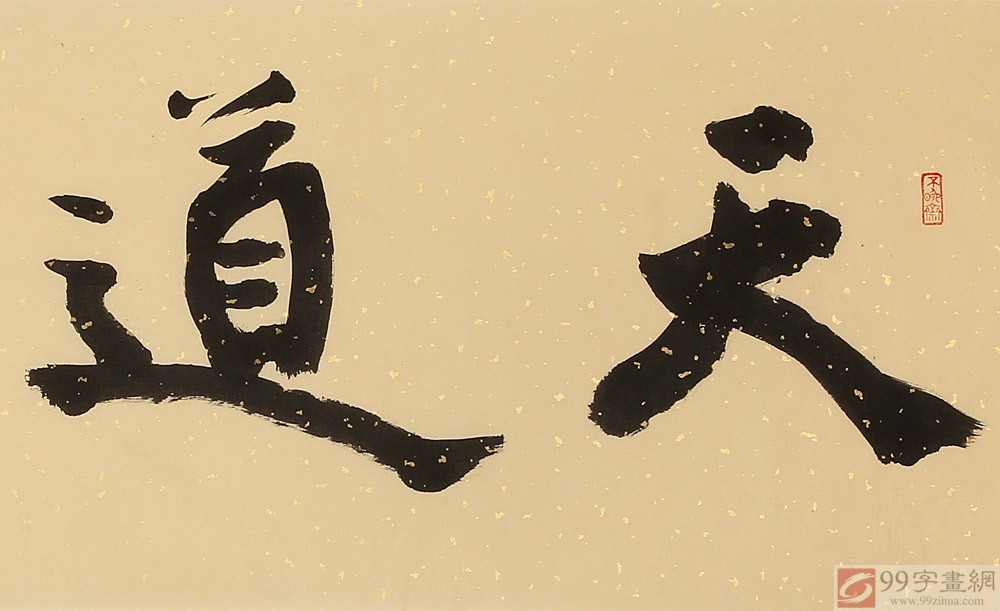 天道
不晚齋
99字畫網
www.99zihua.com